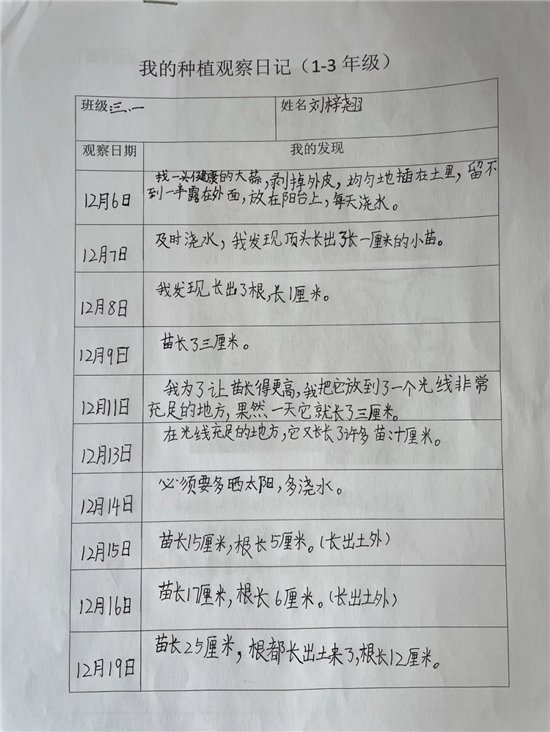 我的种植观察日记（1-3 年级）
班级:三.一 姓名刘梓翘
观察日期 我的发现
12月6日 我一头健康的大蒜,剥掉外皮,均匀地插在土里,留不
到一半露在外面,放在阳台上,每天浇水。
12月7日 及时浇水,我发现顶头长出了长一厘米的小苗。
12月8日 我发现长出了根,长1厘米。
12月9日 苗长了三厘米。
12月11日 我为了让苗长得更高,我把它放到了一个光线非常
充足的地方,果然一天它就长了三厘米。
12月13日 在光线充足的地方,它又长长了许多苗:十厘米。
12月14日 必须要多晒太阳,多浇水。
12月15日 苗长15厘米,根长5厘米。(长出土外)
12月16日 苗长17厘米,根长6厘米。(长出土外)
12月19日 苗长25厘米,根都长出土来了,根长12厘米。